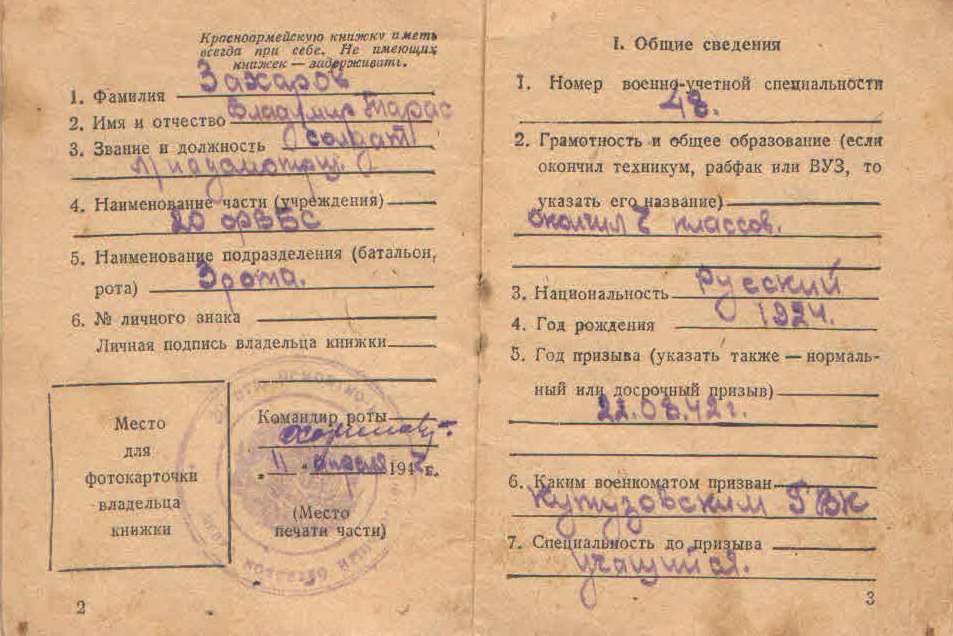 Красноармейскую книжку иметь
всегда при себе. Не имеющих
книжек — задерживать.
1. Фамилия Захаров
2. Имя и отчество Владимир Тарас
3. Звание и должность солдат
4. Наименование части (учреждения)
20
5. Наименование подразделения (батальон,
рота) 3 рота.
6. № личного знака
Личная подпись владельца книжки
Место
для
фотокарточки
владельца
книжки
Командир роты
„11" апреля 194 г.
(Место
печати части)
2
I. Общие сведения
1. Номер военно-учетной специальности
48.
2. Грамотность и общее образование (если
окончил техникум, рабфак или ВУЗ, то
указать его название)
окончил классов.
3. Национальность Русский
4. Год рождения 1924.
5. Год призыва (указать также — нормаль-
ный или досрочный призыв)
22.08.42г.
6. Каким военкоматом призван
Кутузовским ГВК
7. Специальность до призыва
учащийся.
3